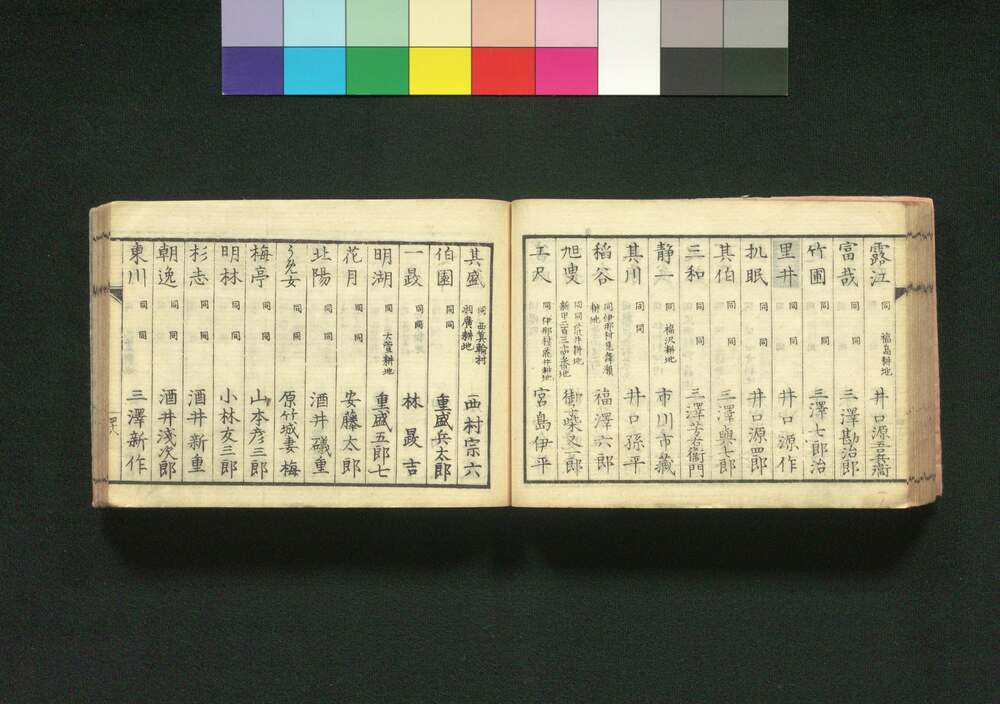 露江 同 福島耕地 井口源吾兵衛
富哉 同 同 三澤勘治郎
竹圃 同 同 三澤七郎治
里井 同 同 井口源作
扒眠 同 同 井口源四郎
其伯 同 同 三澤與七郎
三和 同 同 三澤芳右衞門
静一 同 福沢耕地 市川市藏
其川 同 同 井口孫平
稻谷 同 伊那村 耕地 福澤六郎
旭叟 同 同 荒井耕地 御柴又三郎
工尺 同 伊那村 耕地 宮島伊平
其盛 同 西箕輪村 羽廣耕地 西村宗六
伯園 同 同 重盛兵太郎
一㝡 同 同 林㝡吉
明湖 同 大萱耕地 重盛五郎七
花月 同 同 安藤太郎
北陽 同 同 酒井礒重
うめ女 同 同 原竹城妻梅
梅亭 同 同 山本彦三郎
明林 同 同 小林友三郎
杉志 同 同 酒井新重
朝逸 同 同 酒井淺次郎
東川 同 同 三澤新作
四十八